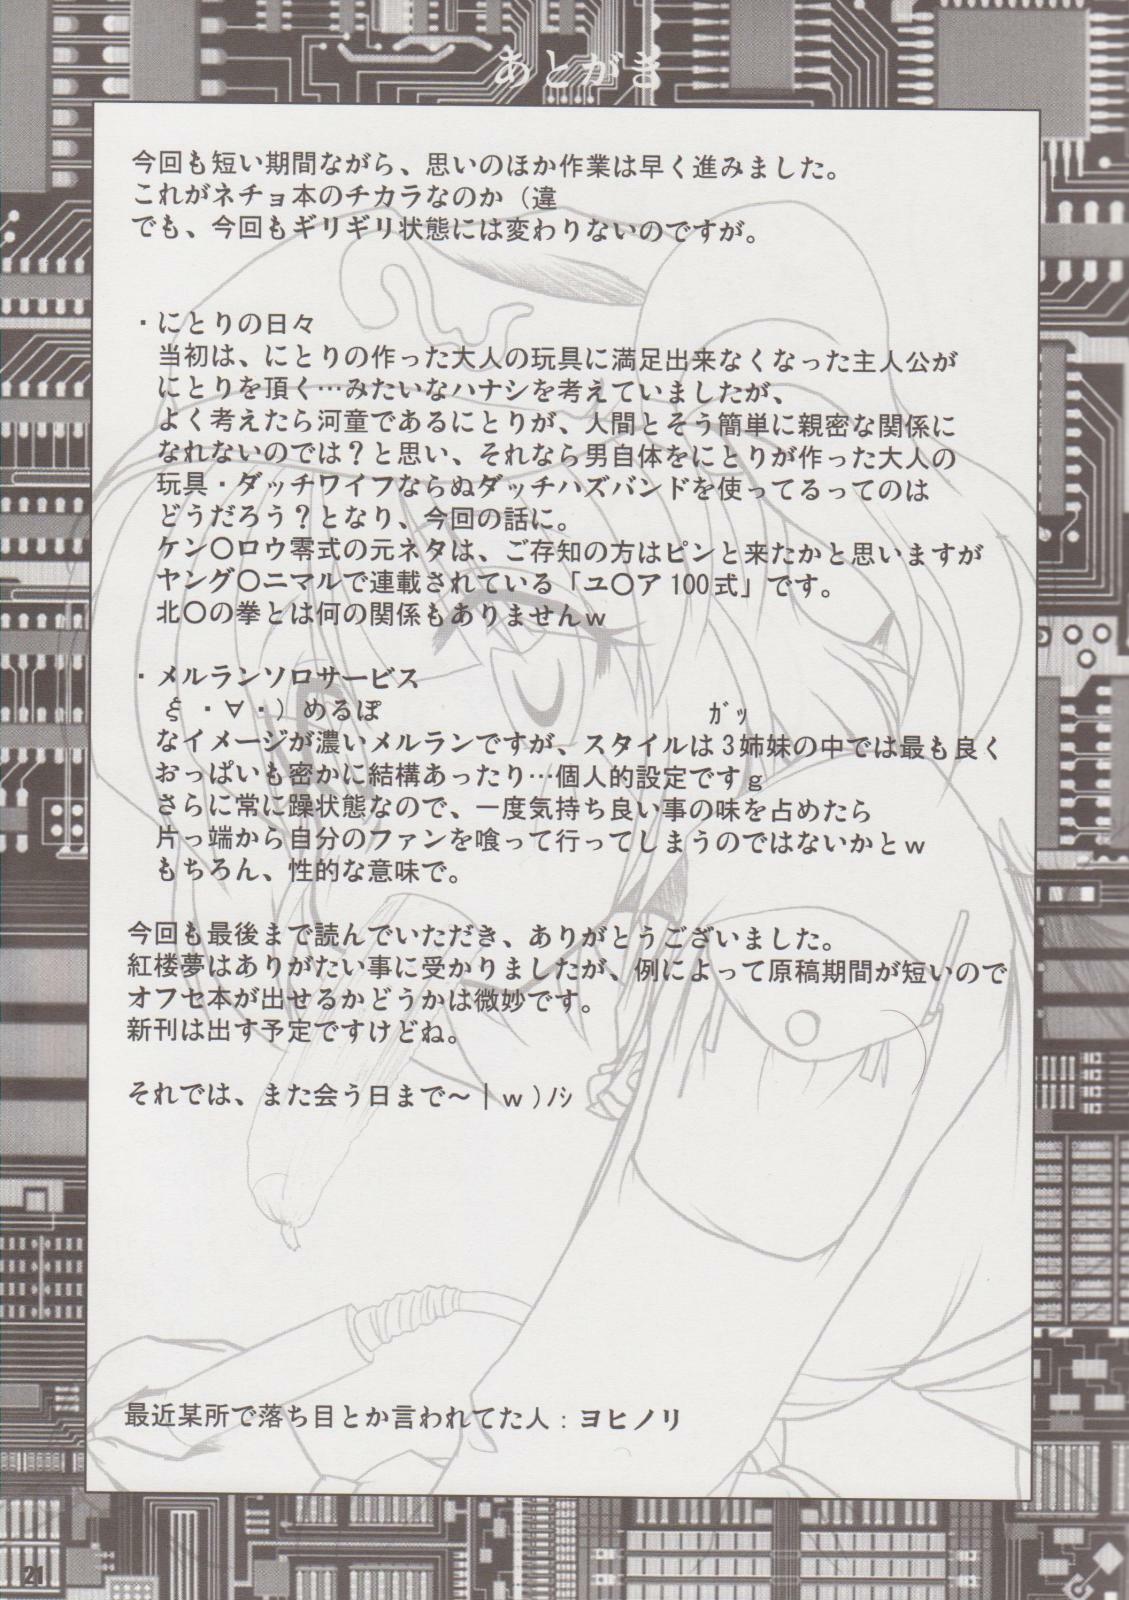 あとがき
今回も短い期間ながら、思いのほか作業は早く進みました。
これがネチョ本のチカラなのか（違
でも、今回もギリギリ状態には変わりないのですが。
・にとりの日々
当初は、にとりの作った大人の玩具に満足出来なくなった主人公が
にとりを頂く…みたいなハナシを考えていましたが、
よく考えたら河童であるにとりが、人間とそう簡単に親密な関係に
なれないのでは？と思い、それなら男自体をにとりが作った大人の
玩具・ダッチワイフならぬダッチハズバンドを使ってるってのは
どうだろう？となり、今回の話に。
ケン○ロウ零式の元ネタは、ご存知の方はピンと来たかと思いますが
ヤング○ニマルで連載されている「ユ○ア100式」です。
北○の拳とは何の関係もありませんｗ
・メルランソロサービス
ξ ・∀・）めるぽ　　　　　　　　　　　　ｶﾞｯ
なイメージが濃いメルランですが、スタイルは3姉妹の中では最も良く
おっぱいも密かに結構あったり…個人的設定ですｇ
さらに常に躁状態なので、一度気持ち良い事の味を占めたら
片っ端から自分のファンを喰って行ってしまうのではないかとｗ
もちろん、性的な意味で。
今回も最後まで読んでいただき、ありがとうございました。
紅楼夢はありがたい事に受かりましたが、例によって原稿期間が短いので
オフセ本が出せるかどうかは微妙です。
新刊は出す予定ですけどね。
それでは、また会う日まで～｜ｗ）ﾉｼ
最近某所で落ち目とか言われてた人：ヨヒノリ
21